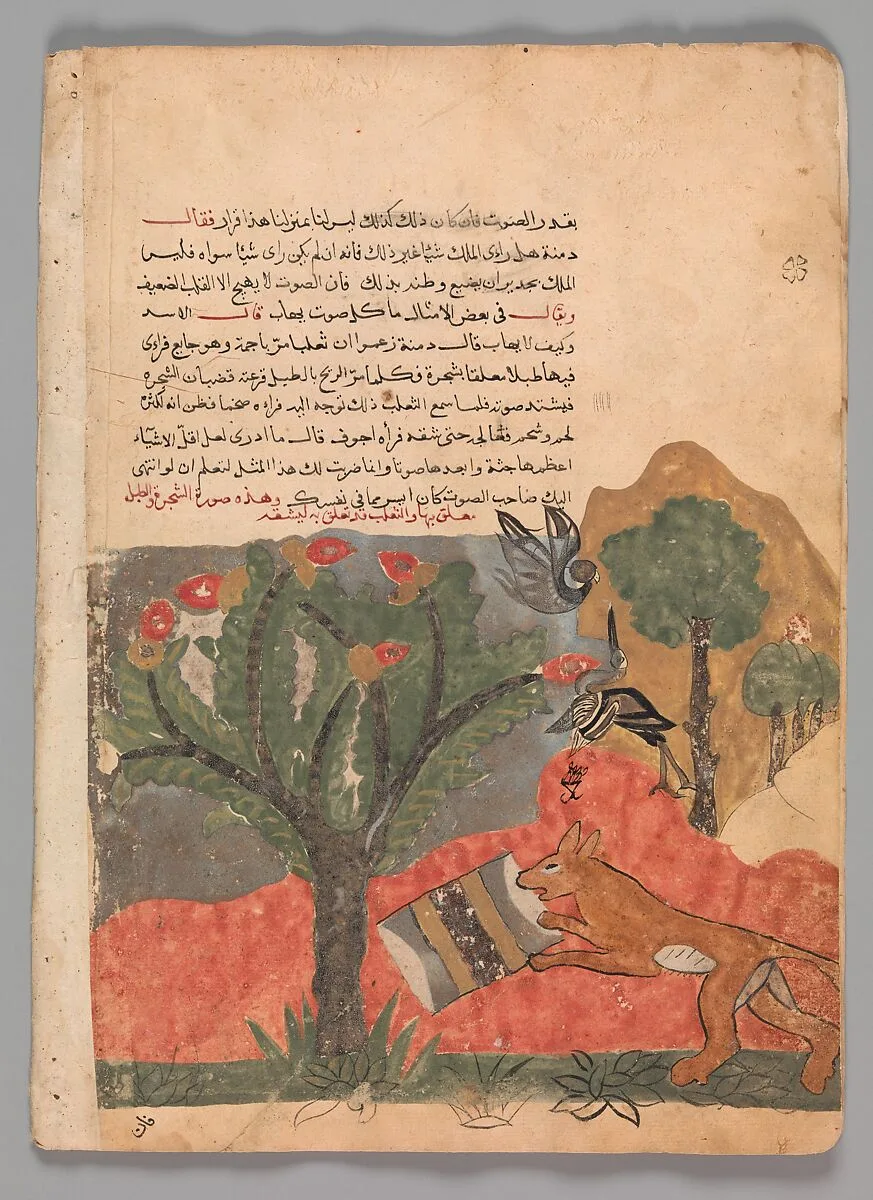 بقدر الصوت فان كان ذلك كذلك ليس لنا بمنزلنا هذا قرار فقال
دمنة هل راى الملك شيًا غير ذلك فانه ان لم يكن راى شيًا سواه فليس
الملك بجدير ان يضيع وطنه بذلك فان الصوت لا يهيج الا القلب الضعيف
ويقال فى بعض الامثال ما كل صوت يهاب قال الاسد
وكيف لا يهاب قال دمنة زعموا ان ثعلبا مرّ باجمة وهو جايع فراى
فيها طبلا معلقا بشجرة فكلما مرّ الريح بالطبل قرعته قضبان الشجره
فيشتد صوته فلما سمع الثعلب ذلك توجه اليه فراءه ضخما فظن انه لكثره
لحم وشحم حتى شقه فرأه اجوف قال ما ادرى لعل اقلّ الاشيآء
اعظمها جثة وابعدها صوتا وانما ضربت لك هذا المثل لتعلم ان لو انتهى
اليك صاحب الصوت كان ايسر مما فى نفسك وهذه صورة الشجرة والطبل
معلق بها والثعلب قد تعلق به ليشقه
فان